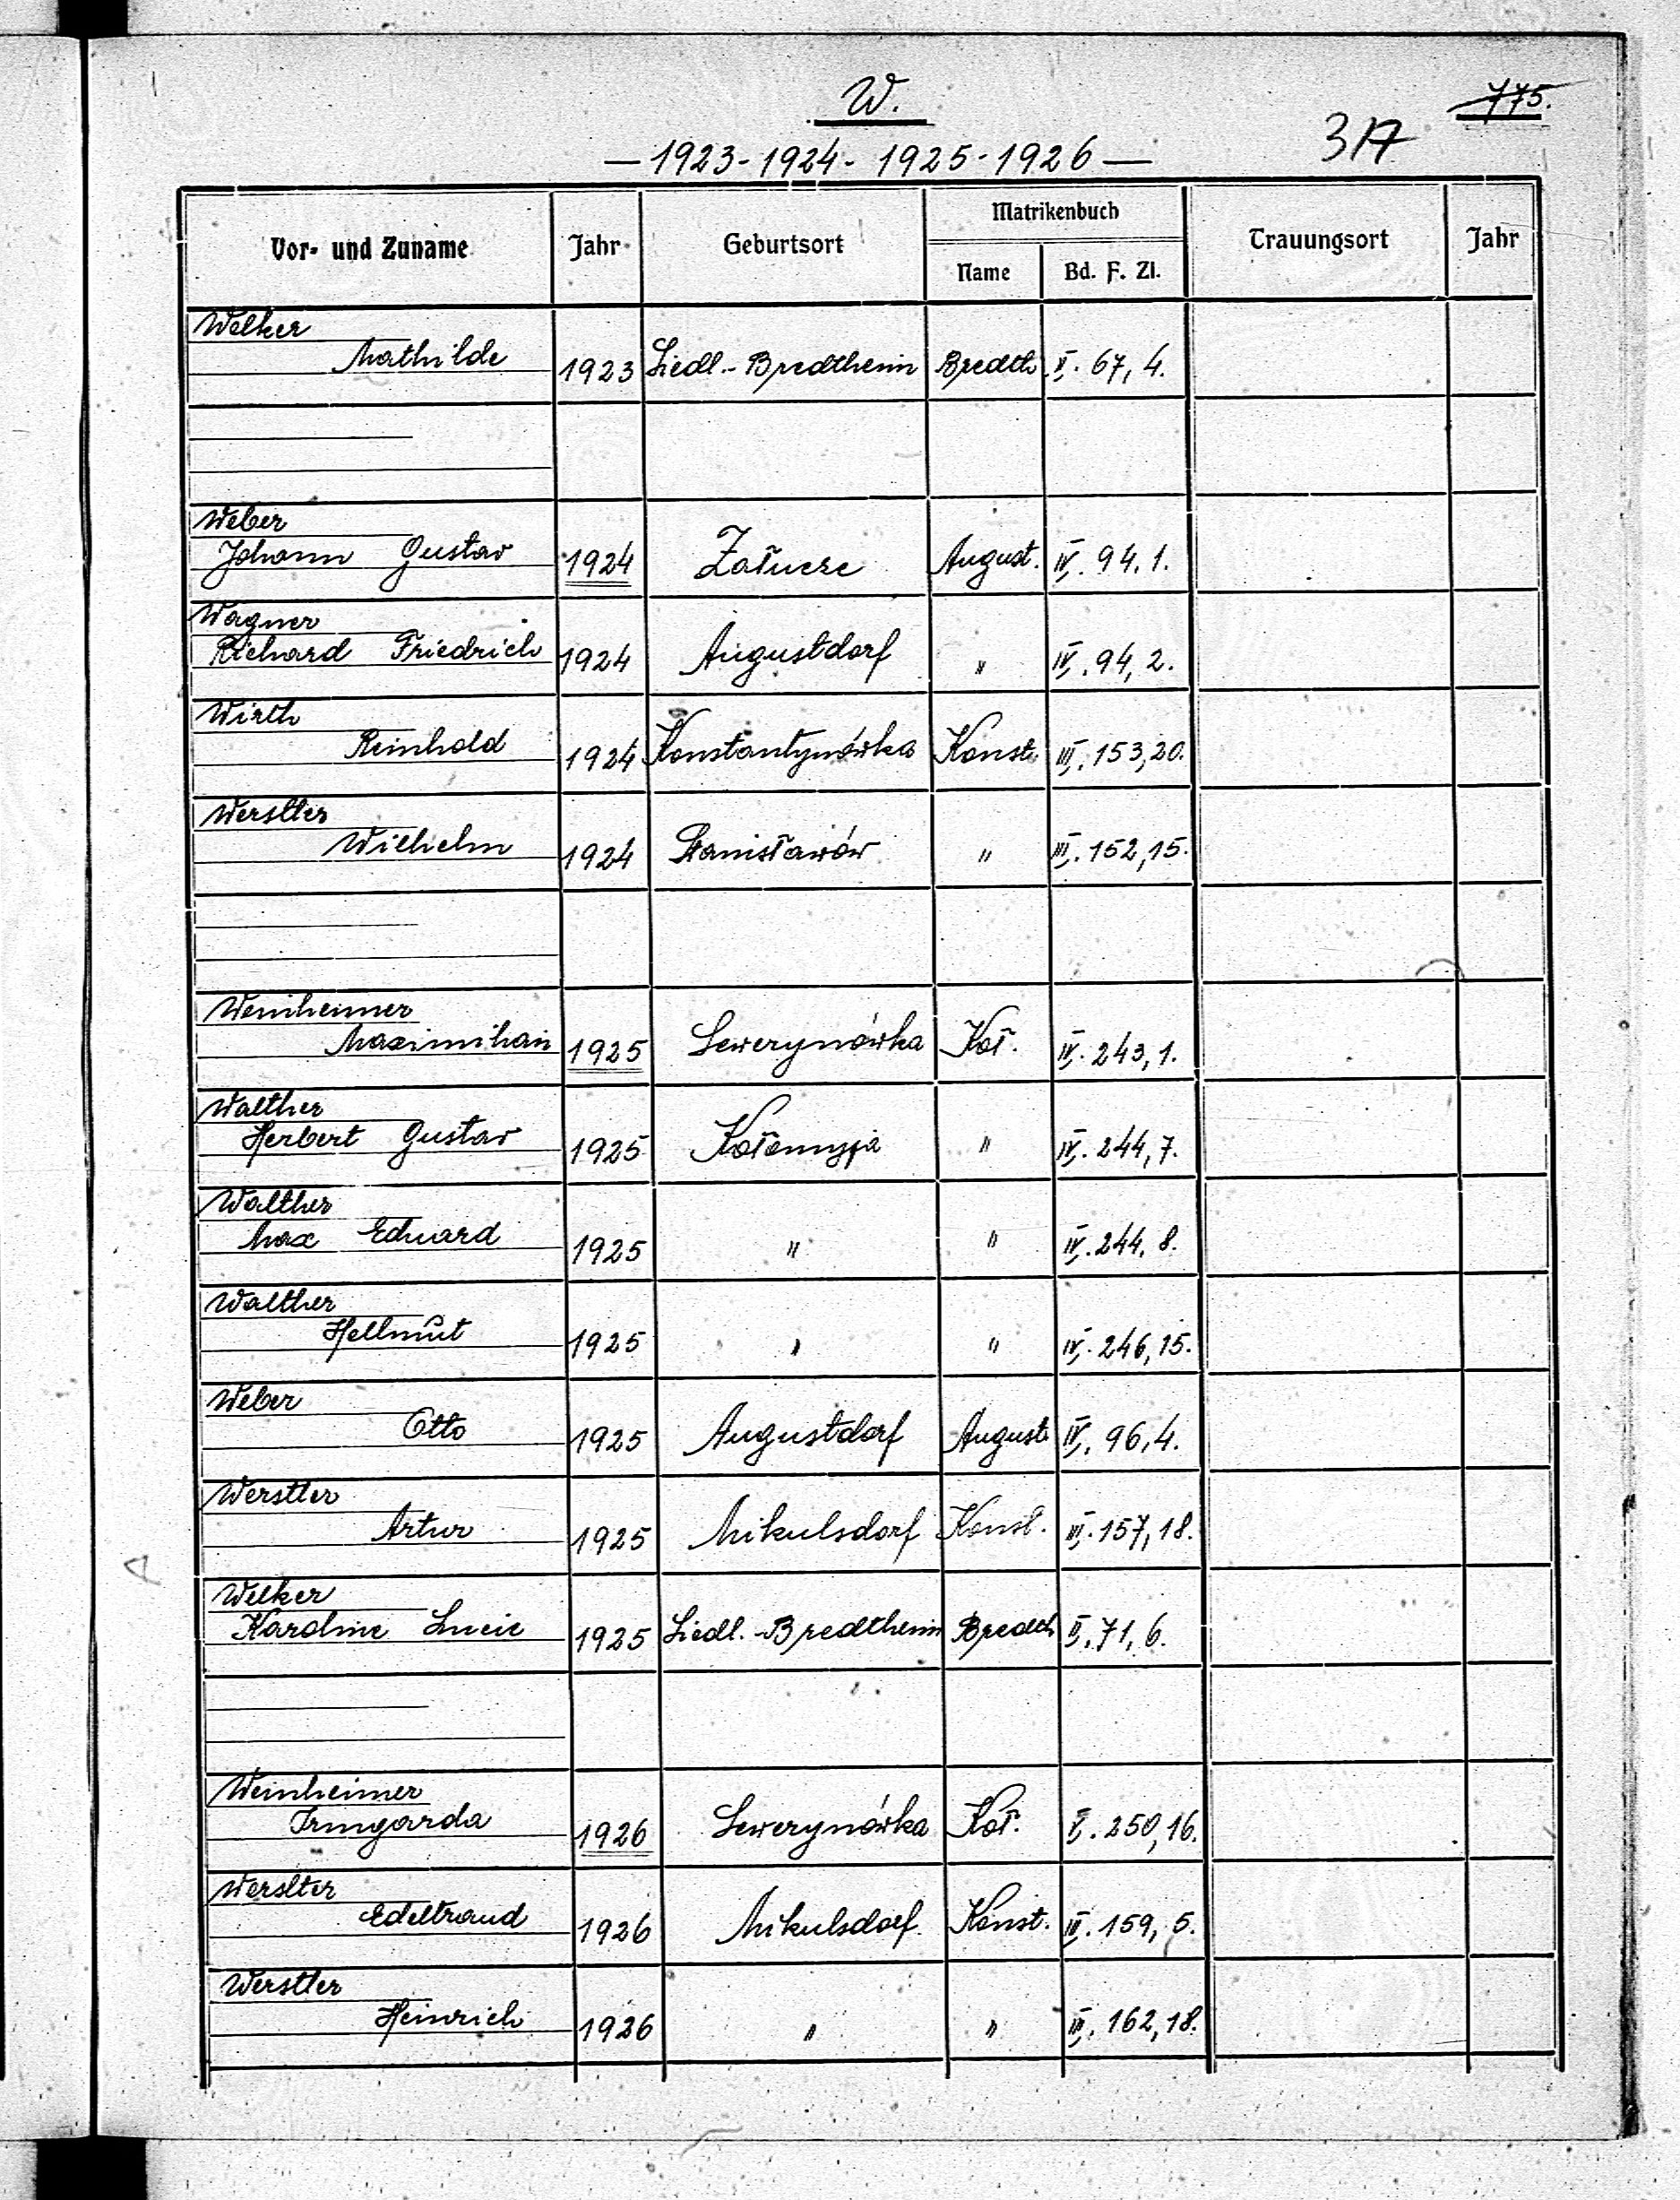 W.
775.
— 1923 - 1924 - 1925 - 1926 —
317
Vor- und Zuname Jahr Geburtsort Matrikenbuch Trauungsort Jahr
Name Bd. F. Zl.
Welker
Mathilde 1923 Siedl.-Bredtheim Bredth. II. 67, 4.
Weber
Johann Gustav 1924 Załucze August. IV. 94. 1.
Wagner
Richard Friedrich 1924 Augustdorf " IV. 94, 2.
Wirth
Reinhold 1924 Konstantynówka Konst. III. 153, 20.
Werstler
Wilhelm 1924 Stanisławów " III. 152, 15.
Weinheimer
Maximilian 1925 Sewerynówka Koł. IV. 243, 1.
Walther
Herbert Gustav 1925 Kołomyja " IV. 244, 7.
Walther
Max Eduard 1925 " " IV. 244, 8.
Walther
Hellmut 1925 " " IV. 246, 15.
Weber
Otto 1925 Augustdorf August. IV. 96, 4.
Werstler
Artur 1925 Mikulsdorf Konst. III. 157, 18.
Welker
Karoline Lucie 1925 Siedl.-Bredtheim Bredth. II. 71, 6.
Weinheimer
Irmgarda 1926 Sewerynówka Koł. V. 250, 16.
Werstler
Edeltraud 1926 Mikulsdorf Konst. III. 159, 5.
Werstler
Heinrich 1926 " " III. 162, 18.